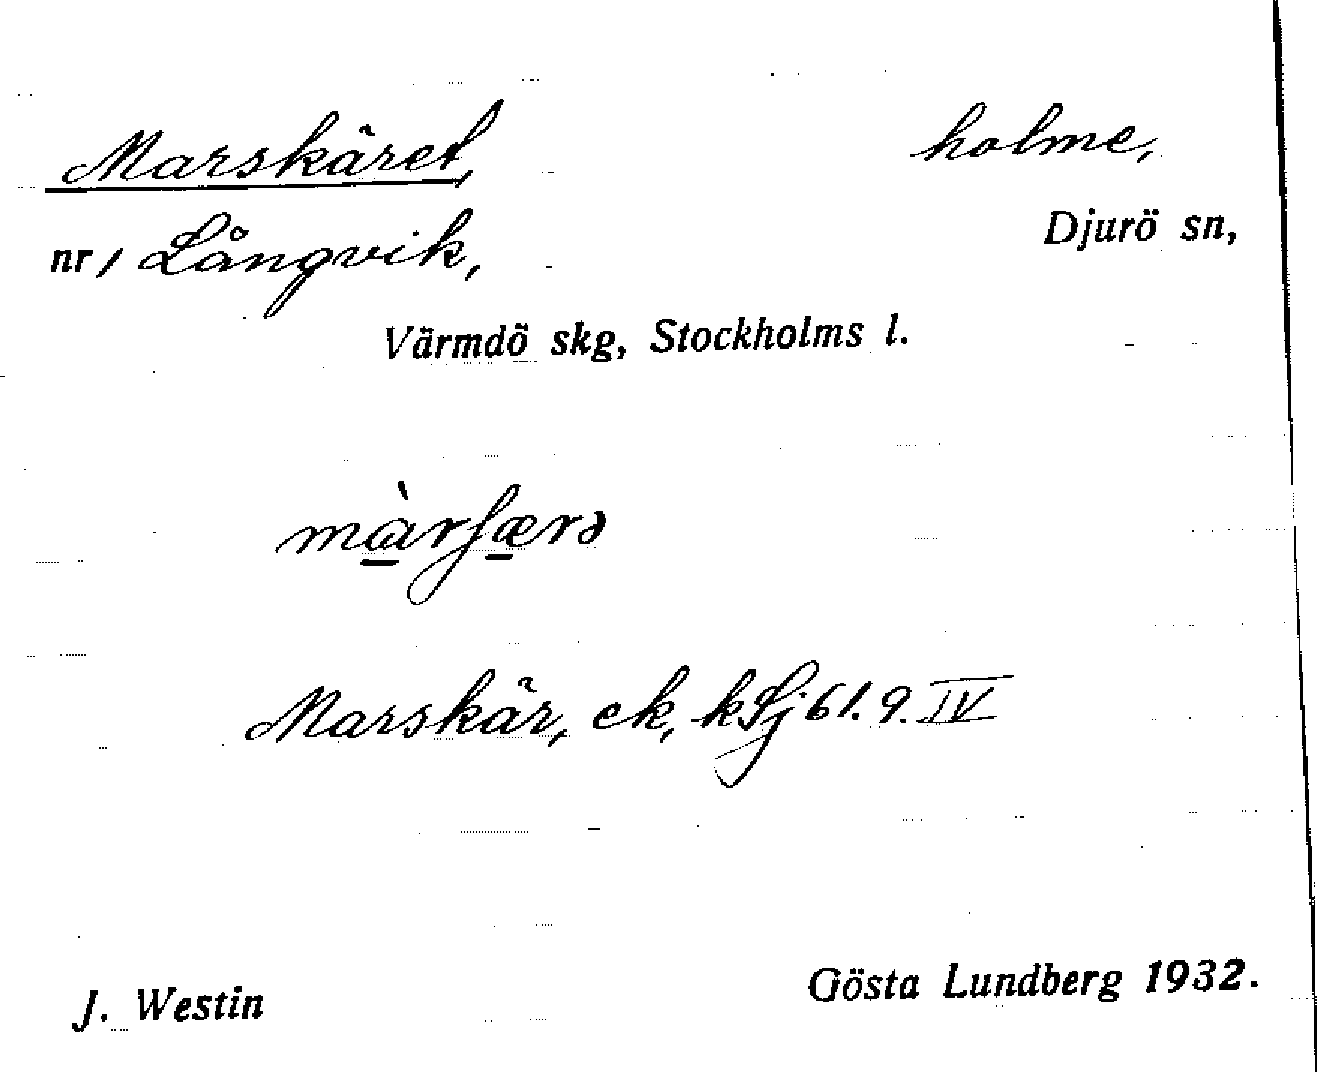 Marskäret, holme,
nr 1 Långvik, Djurö sn,
Värmdö skg, Stockholms l.
màrʃærə
Marskär, ek, kSj 61. 9. IV
J. Westin Gösta Lundberg 1932.